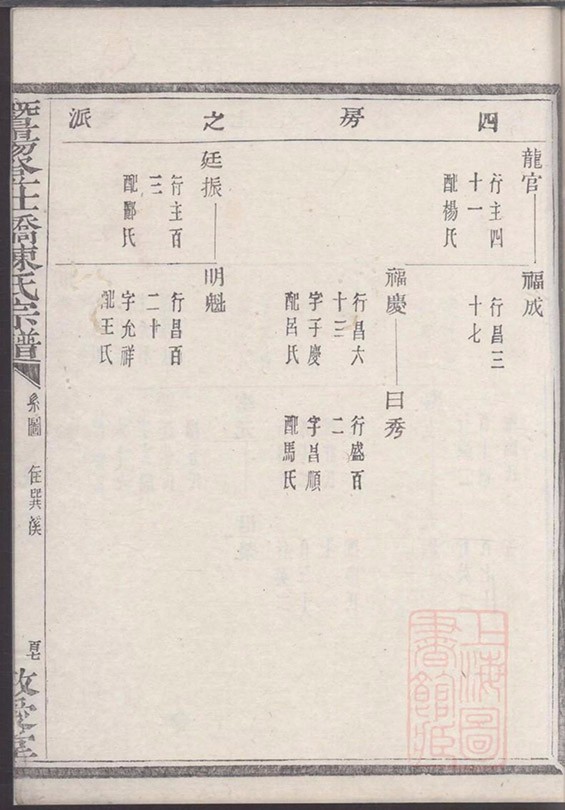 四房之派
龍官
行主四
十一
配楊氏
福成
行昌三
十七
福慶
行昌六
十三
字子慶
配呂氏
曰秀
行盛百
二
字昌順
配馬氏
廷振
行主百
三
配酈氏
明魁
行昌百
二十
字允祥
配王氏
暨陽
橋陳氏宗譜
系圖
住巽溪
上海圖
書館藏